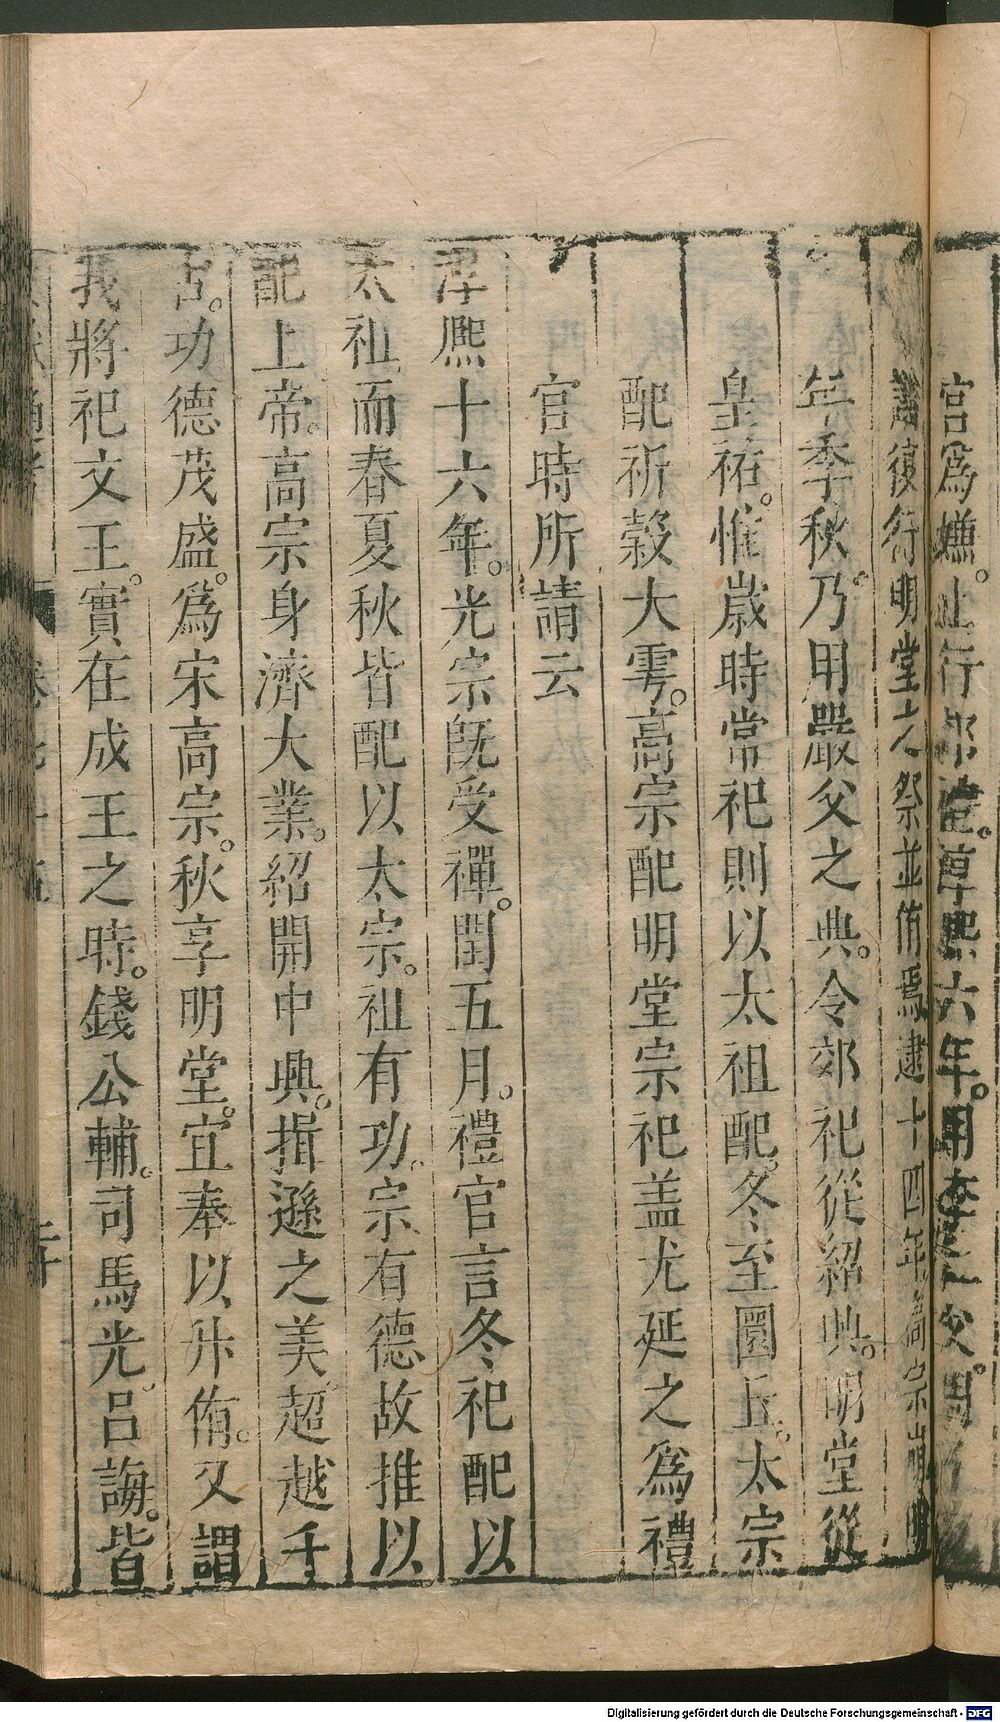 宮爲嫌。止行郊禮。淳熙六年。用李
議復行明堂之祭並侑焉逮十四年高宗崩明
年季秋。乃用嚴父之典。令郊祀從紹興。明堂從
皇祐。惟歲時常祀則以太祖配。冬至圜丘。太宗
配祈穀大雩。高宗配明堂宗祀盖尤延之爲禮
官時所請云
淳熙十六年。光宗旣受禪。閏五月。禮官言冬祀配以
太祖而春夏秋皆配以太宗。祖有功。宗有德故推以
配上帝。高宗身濟大業。紹開中興。揖遜之美超越千
古。功德茂盛。爲宋高宗。秋享明堂。宜奉以升侑。又謂
我將祀文王。實在成王之時。錢公輔。司馬光。呂誨。皆
Digitalisierung gefördert durch die Deutsche Forschungsgemeinschaft - DFG